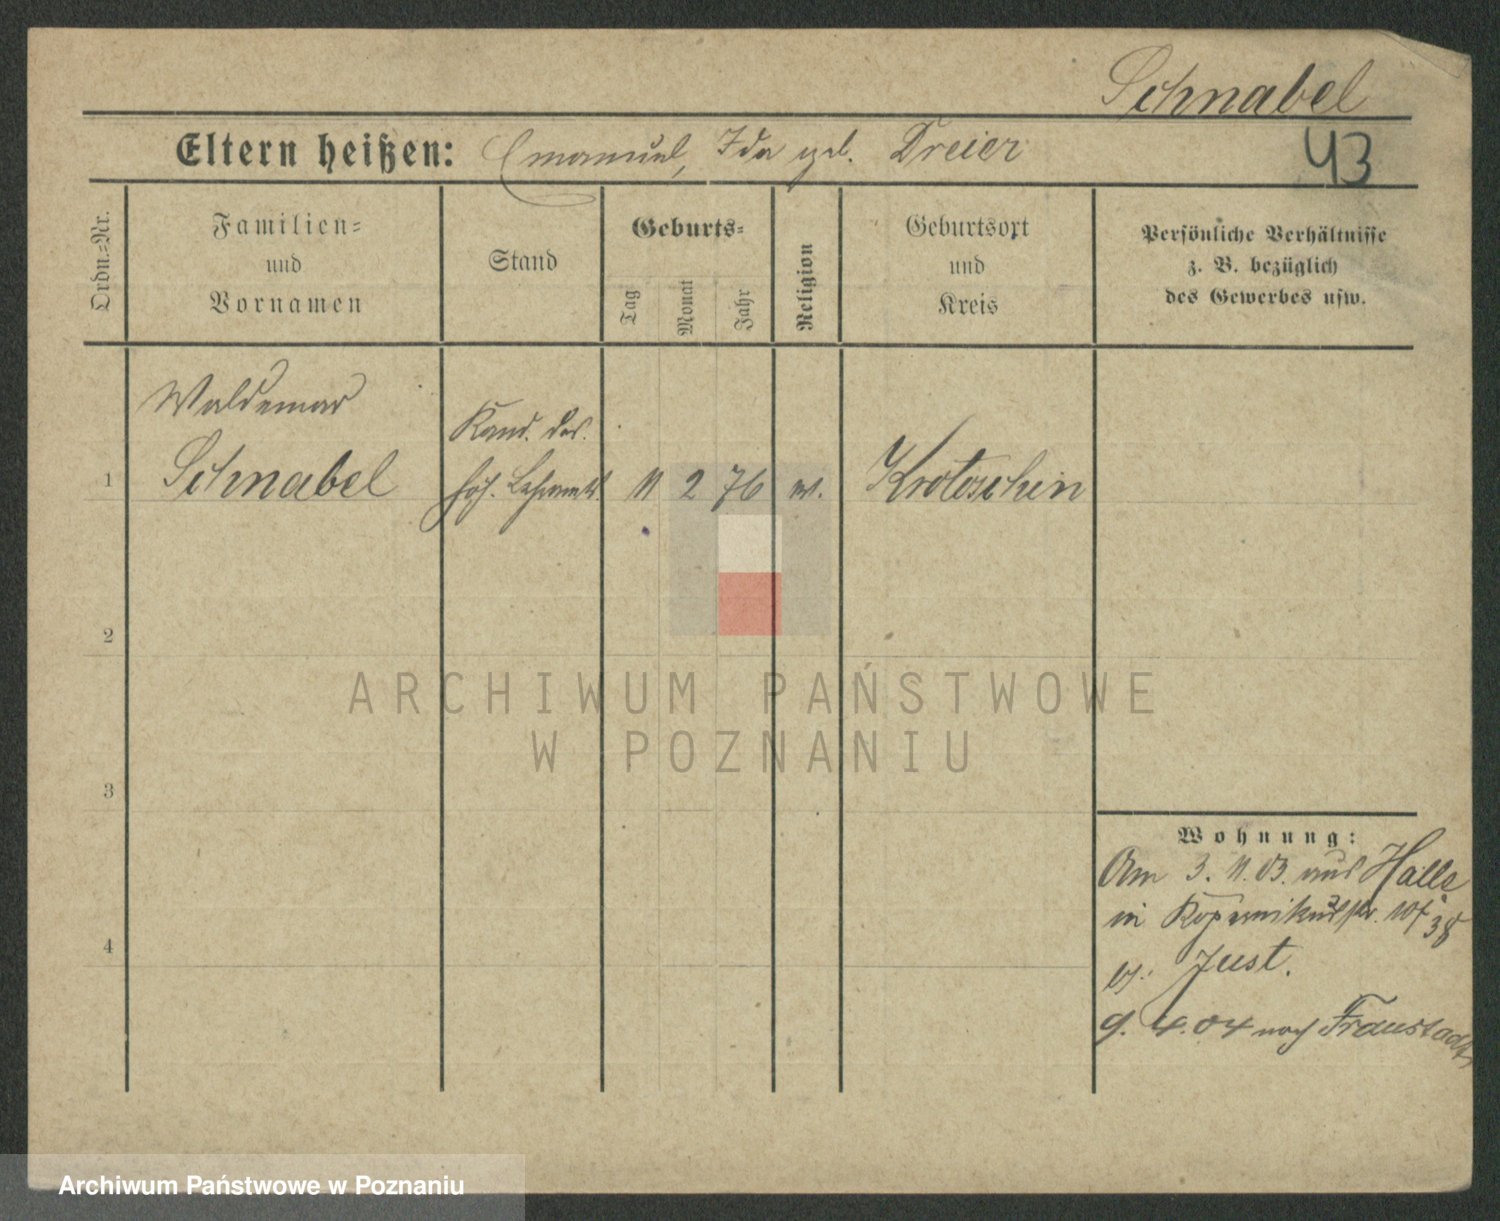 Schnabel
Eltern heißen: Emanuel, Ida geb. Dreier
43
Ordn.=Nr.
Familien=
und
Vornamen
Stand
Geburts=
Tag
Monat
Jahr
Religion
Geburtsort
und
Kreis
Persönliche Verhältnisse
z. B. bezüglich
des Gewerbes usw.
Waldemar
Kand. des.
1 Schnabel höh. Lehramts 11 2 76 Krotoschin
2
3
4
ARCHIWUM PAŃSTWOWE
W POZNANIU
Wohnung:
Am 3. 11. 03. aus Halle
in Kopernikusstr.
b/. Just.
9. 4. 04 nach Fraustadt
Archiwum Państwowe w Poznaniu